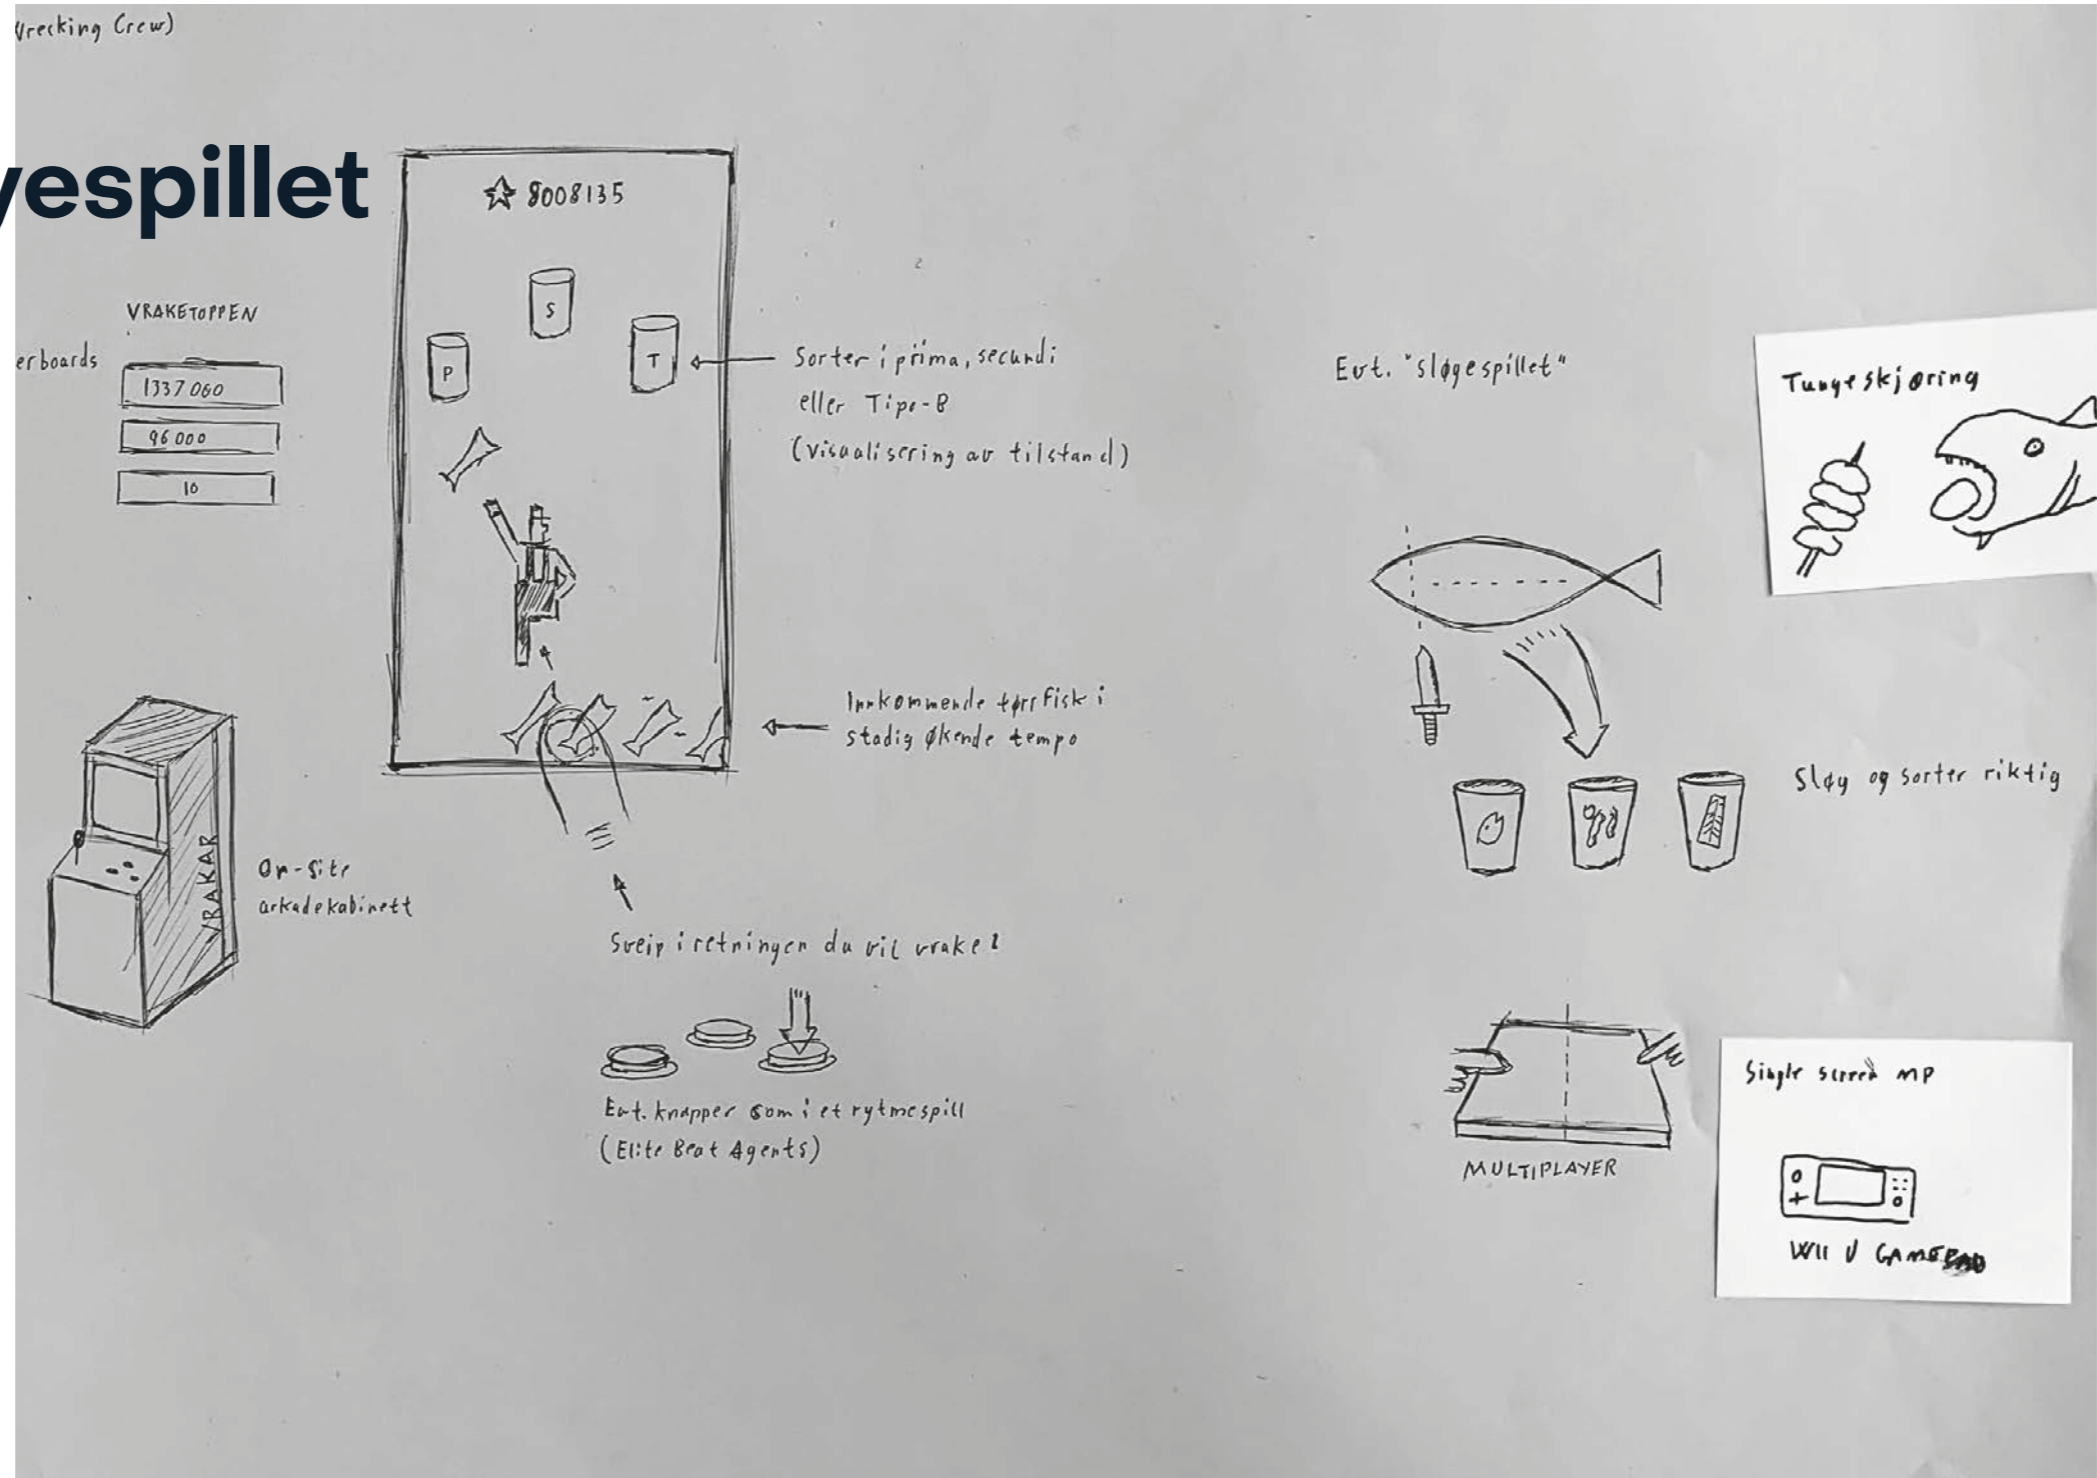 Wrecking Crew)
yespillet
VRAKETOPPEN
erboards
1337 060
96 000
10
☆ 8008135
S
P
T
Sorter i prima, secundi
eller Tipo-B
(visualisering av tilstand)
Innkommende tørrfisk i
stadig økende tempo
VRAKAR
On-site
arkadekabinett
Sveip i retningen du vil vrake!
Evt. knapper som i et rytmespill
(Elite Beat Agents)
Evt. "sløgespillet"
Tungeskjøring
Sløy og sorter riktig
MULTIPLAYER
Single screen MP
WII U GAMEPAD